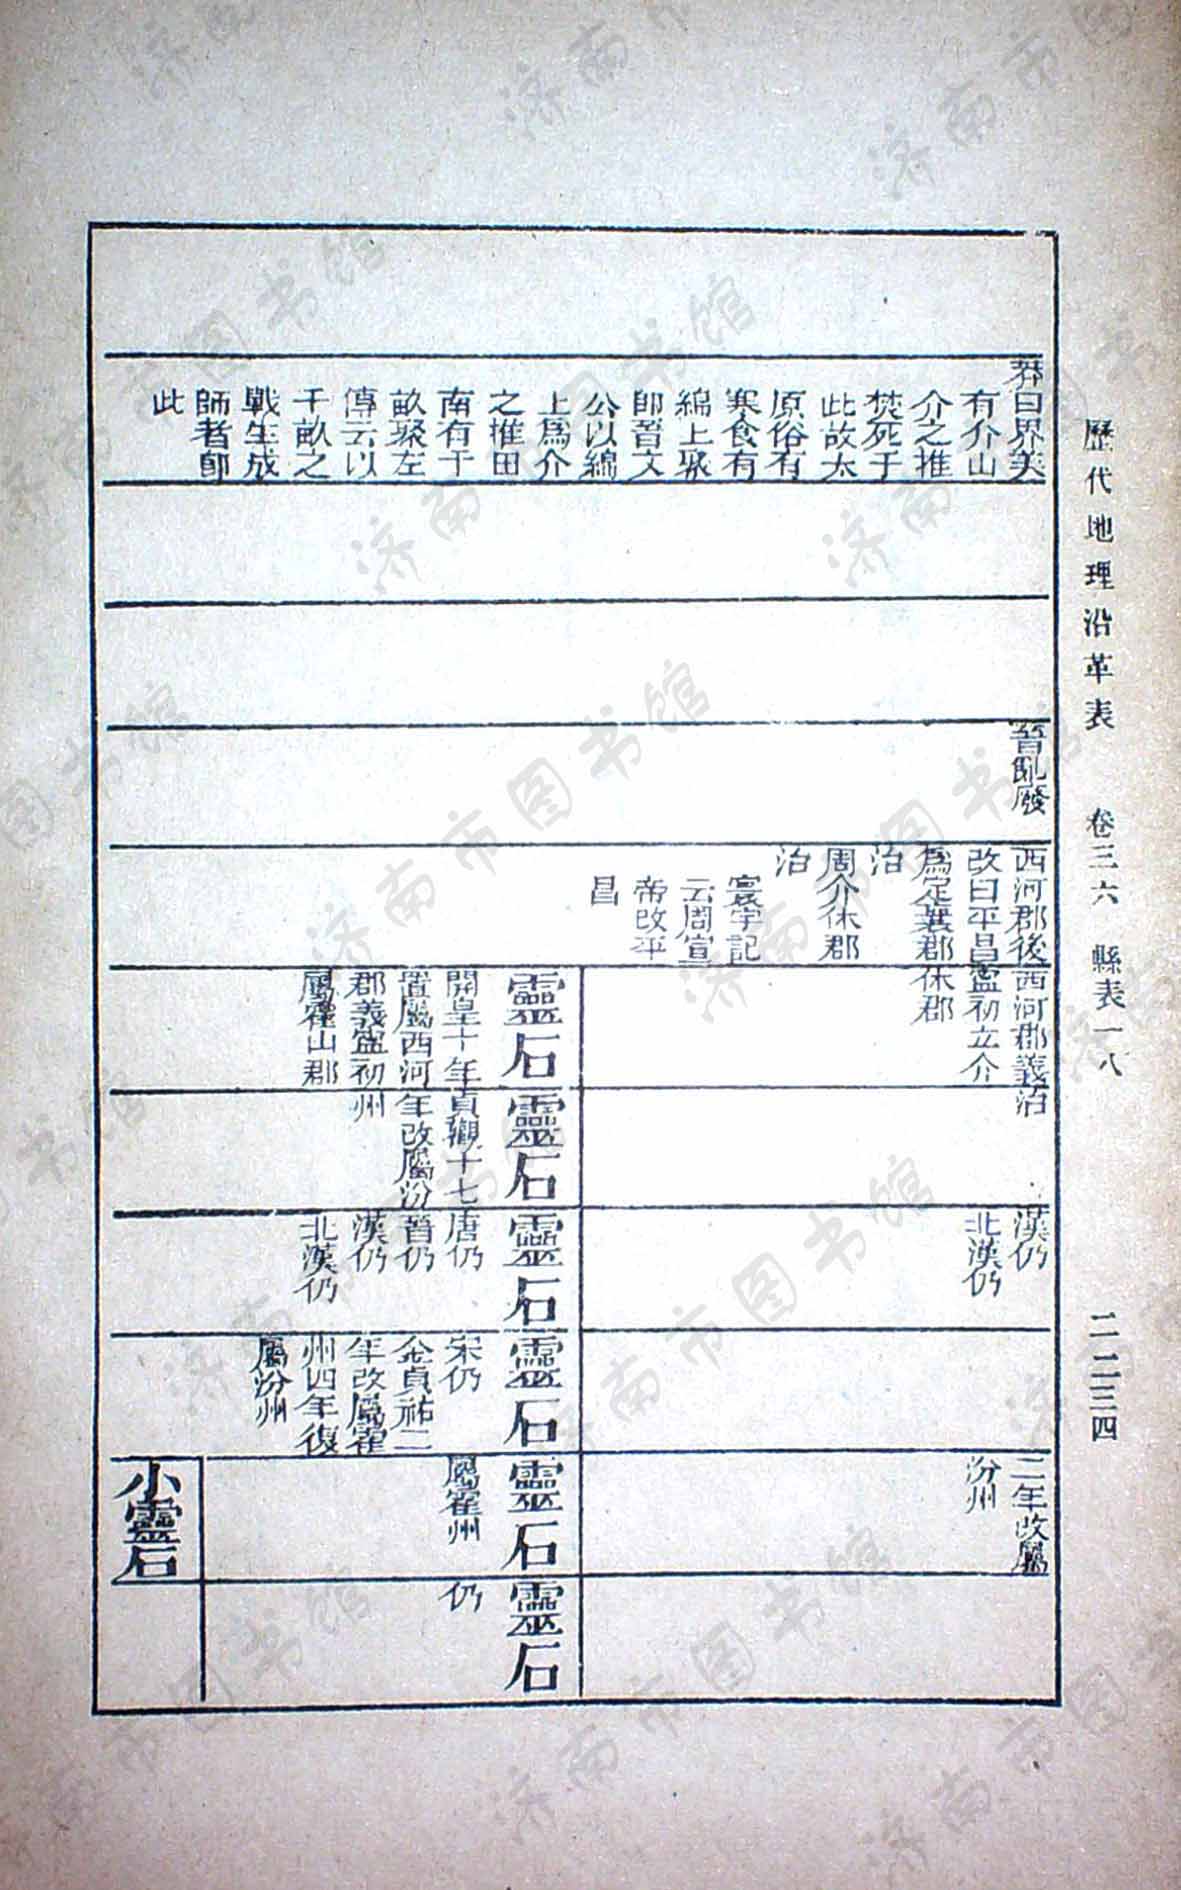 歷代地理沿革表　卷三六　縣表一八　二二三四
莽曰界美
有介山
介之推
焚死于
此故太
原俗有
寒食有
綿上聚
卽晉文
公以綿
上爲介
之推田
南有千
畝聚左
傳云以
千畝之
戰生成
師者卽
此
晉亂廢
西河郡後
改曰平昌
爲定襄郡
治
周介休郡
治
寰宇記
云周宣
帝改平
昌
西河郡義
寧初立介
休郡
治
漢仍
北漢仍
二年改屬
汾州
靈石
開皇十年
置屬西河
郡義寧初
屬霍山郡
靈石
貞觀十七
年改屬汾
州
靈石
唐仍
晉仍
漢仍
北漢仍
靈石
宋仍
金貞祐二
年改屬霍
州四年復
屬汾州
靈石
屬霍州
靈石
仍
小靈石
济南市图书馆